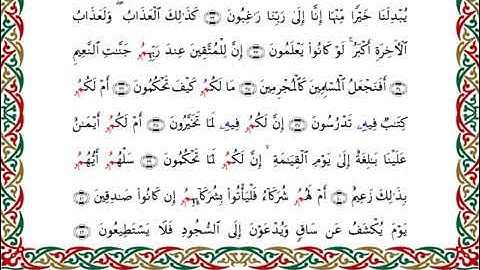 يُبْدِلَنَا خَيْرًا مِّنْهَا إِنَّا إِلَىٰ رَبِّنَا رَٰغِبُونَ ۝ كَذَٰلِكَ ٱلْعَذَابُ ۖ وَلَعَذَابُ
ٱلْأَخِرَةِ أَكْبَرُ ۚ لَوْ كَانُوا۟ يَعْلَمُونَ ۝ إِنَّ لِلْمُتَّقِينَ عِندَ رَبِّهِمُۥ جَنَّٰتِ ٱلنَّعِيمِ
۝ أَفَنَجْعَلُ ٱلْمُسْلِمِينَ كَٱلْمُجْرِمِينَ ۝ مَا لَكُمُۥ كَيْفَ تَحْكُمُونَ ۝ أَمْ لَكُمُۥ
كِتَٰبٌ فِيهِۦ تَدْرُسُونَ ۝ إِنَّ لَكُمُۥ فِيهِۦ لَمَا تَخَيَّرُونَ ۝ أَمْ لَكُمُۥ أَيْمَٰنٌ
عَلَيْنَا بَٰلِغَةٌ إِلَىٰ يَوْمِ ٱلْقِيَٰمَةِ ۙ إِنَّ لَكُمُۥ لَمَا تَحْكُمُونَ ۝ سَلْهُمُۥ أَيُّهُمُۥ
بِذَٰلِكَ زَعِيمٌ ۝ أَمْ لَهُمُۥ شُرَكَآءُ فَلْيَأْتُوا۟ بِشُرَكَآئِهِمُۥ إِن كَانُوا۟ صَٰدِقِينَ ۝
يَوْمَ يُكْشَفُ عَن سَاقٍ وَيُدْعَوْنَ إِلَى ٱلسُّجُودِ فَلَا يَسْتَطِيعُونَ ۝